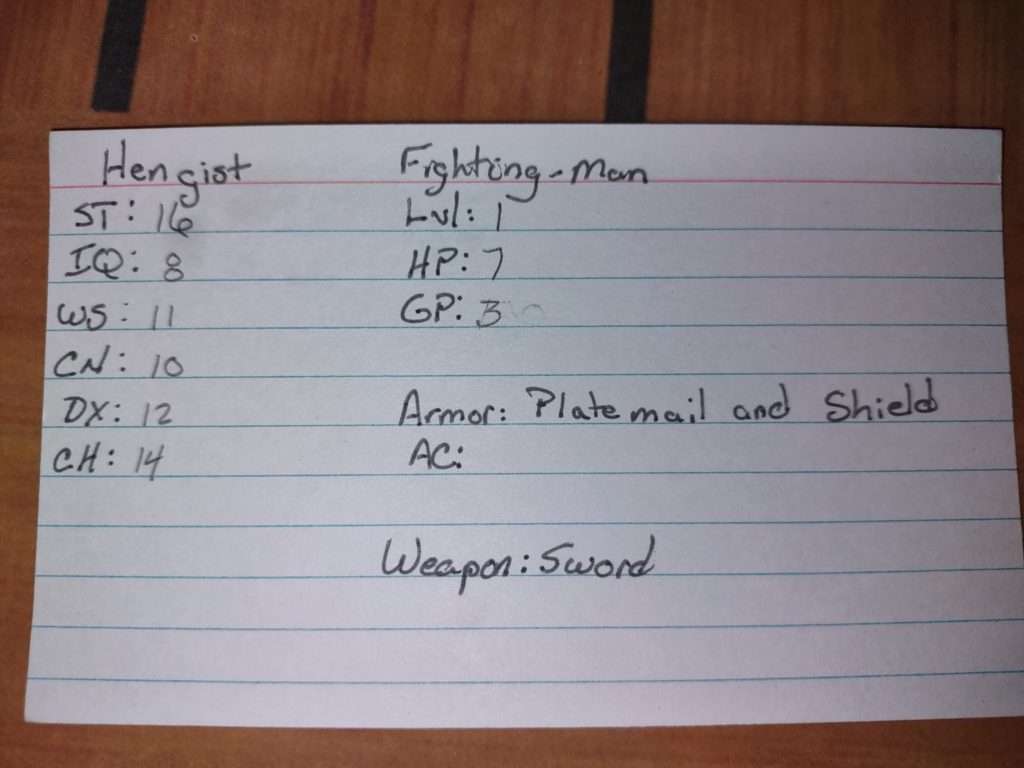 Hengist Fighting-Man
ST: 16 Lvl: 1
IQ: 8 HP: 7
WS: 11 GP: 3
CN: 10
DX: 12 Armor: Plate mail and Shield
CH: 14 AC:
Weapon: Sword